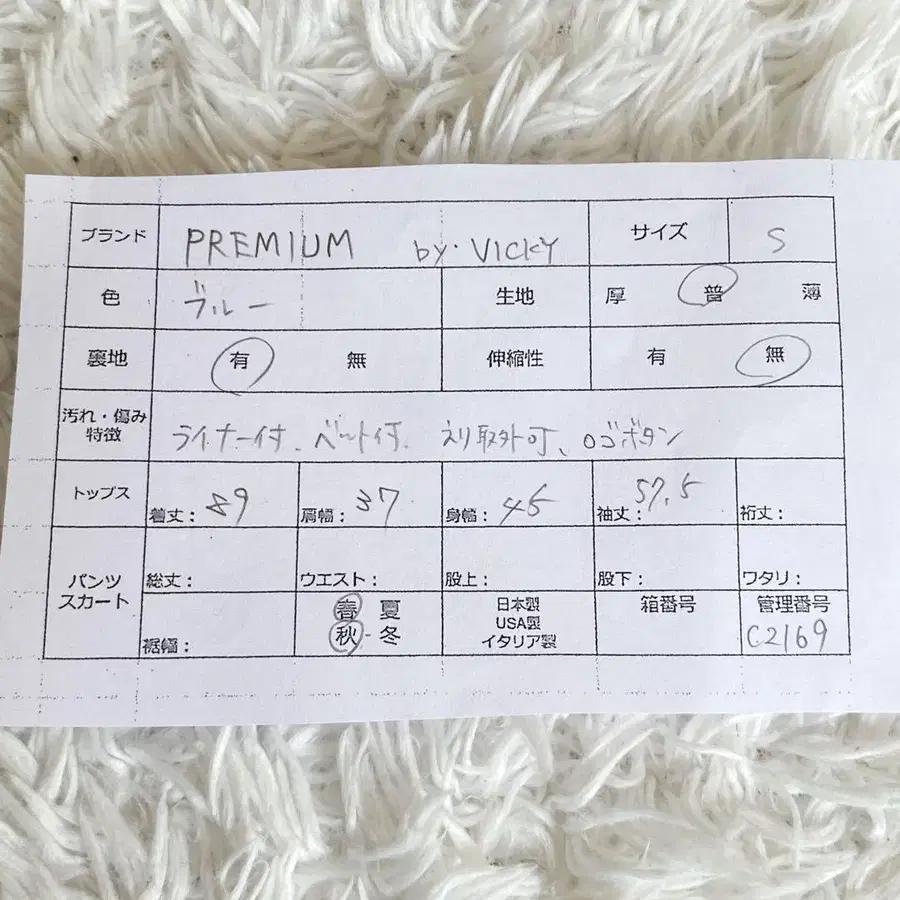 ブランド PREMIUM by. VICKY サイズ S
色 ブルー 生地 厚 普 薄
裏地 有 無 伸縮性 有 無
汚れ・傷み
特徴 ライナー付、ベルト付、えり取外可、ロゴボタン
トップス 着丈: 89 肩幅: 37 身幅: 45 袖丈: 57.5 裄丈:
パンツ
スカート 総丈: ウエスト: 股上: 股下: ワタリ:
裾幅: 春 夏
秋・冬
日本製
USA製
イタリア製
箱番号
管理番号
C2169